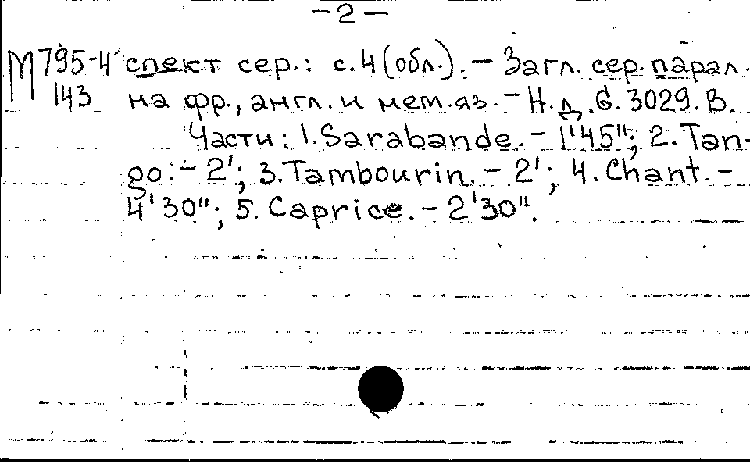 - 2 -
М 795-4 спект сер.: с.4 (обл.). - Загл. сер. парал.
143 на фр., англ. и нем. яз. - Н.д. G. 3029. B.
Части: 1. Sarabande. - 1'45"; 2. Tan-
go: - 2'; 3. Tambourin. - 2'; 4. Chant. -
4'30"; 5. Caprice. - 2'30".